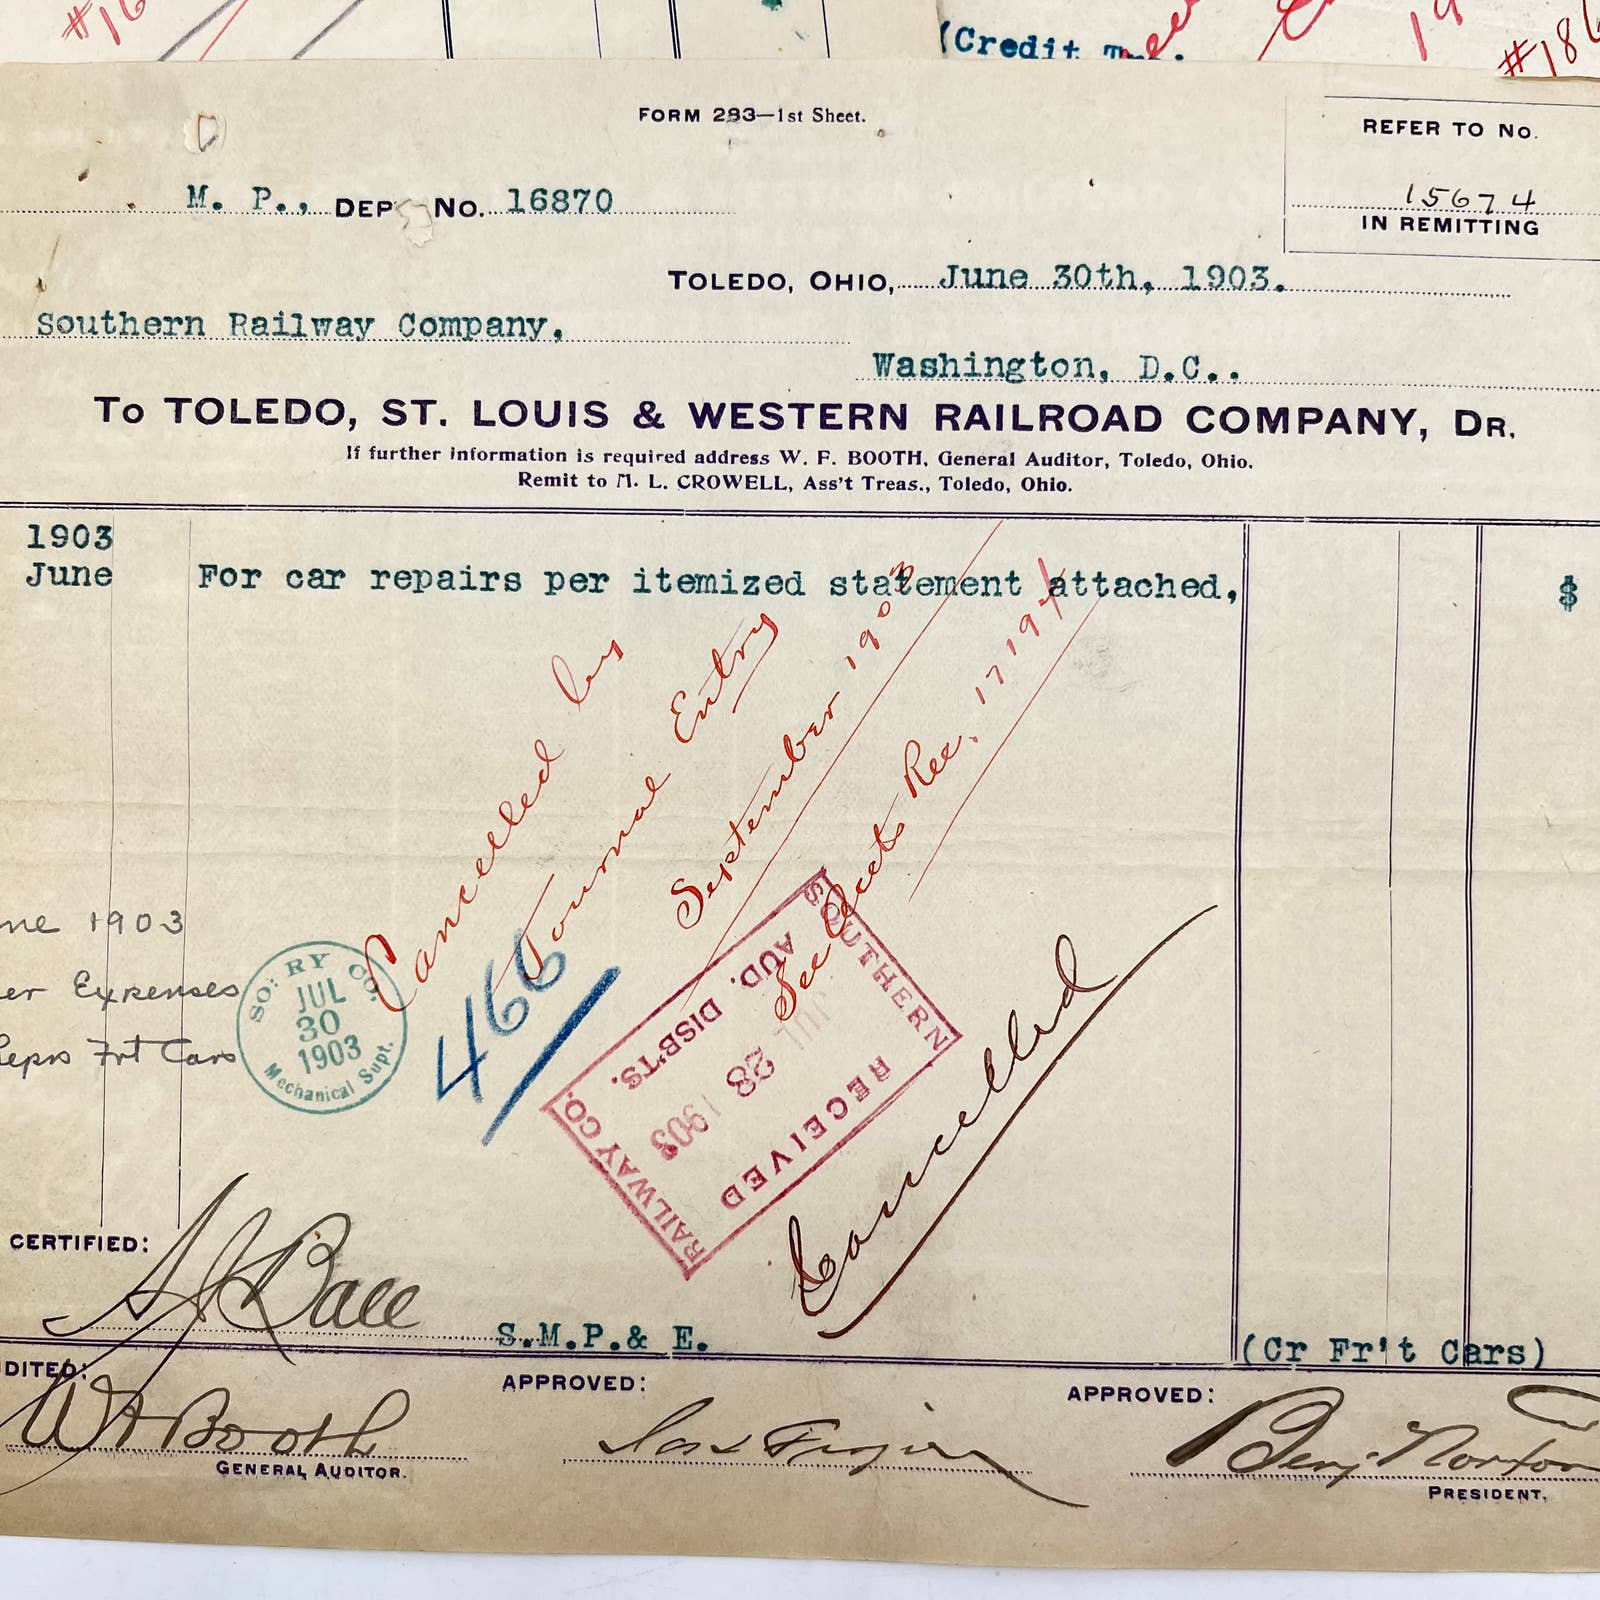 #16
(Credit
#186
FORM 283—1st Sheet.
REFER TO No.
15674
IN REMITTING
M. P., DEP No. 16870
TOLEDO, OHIO, June 30th, 1903.
Southern Railway Company,
Washington, D.C..
To TOLEDO, ST. LOUIS & WESTERN RAILROAD COMPANY, DR.
If further information is required address W. F. BOOTH, General Auditor, Toledo, Ohio.
Remit to M. L. CROWELL, Ass't Treas., Toledo, Ohio.
1903
June For car repairs per itemized statement attached, $
Cancelled by
Journal Entry
September 1903
See Accts Rec. 17194
466
ne 1903
er Expenses
Reprs Frt Cars
SO. RY CO.
JUL
30
1903
Mechanical Supt.
SOUTHERN
RAILWAY CO.
AUD. DISB'TS.
JUL 28 1903
RECEIVED
Cancelled
CERTIFIED:
S.M.P.& E.
(Cr Fr't Cars)
DITED:
W F Booth
GENERAL AUDITOR.
APPROVED:
APPROVED:
Benj Norton
PRESIDENT.